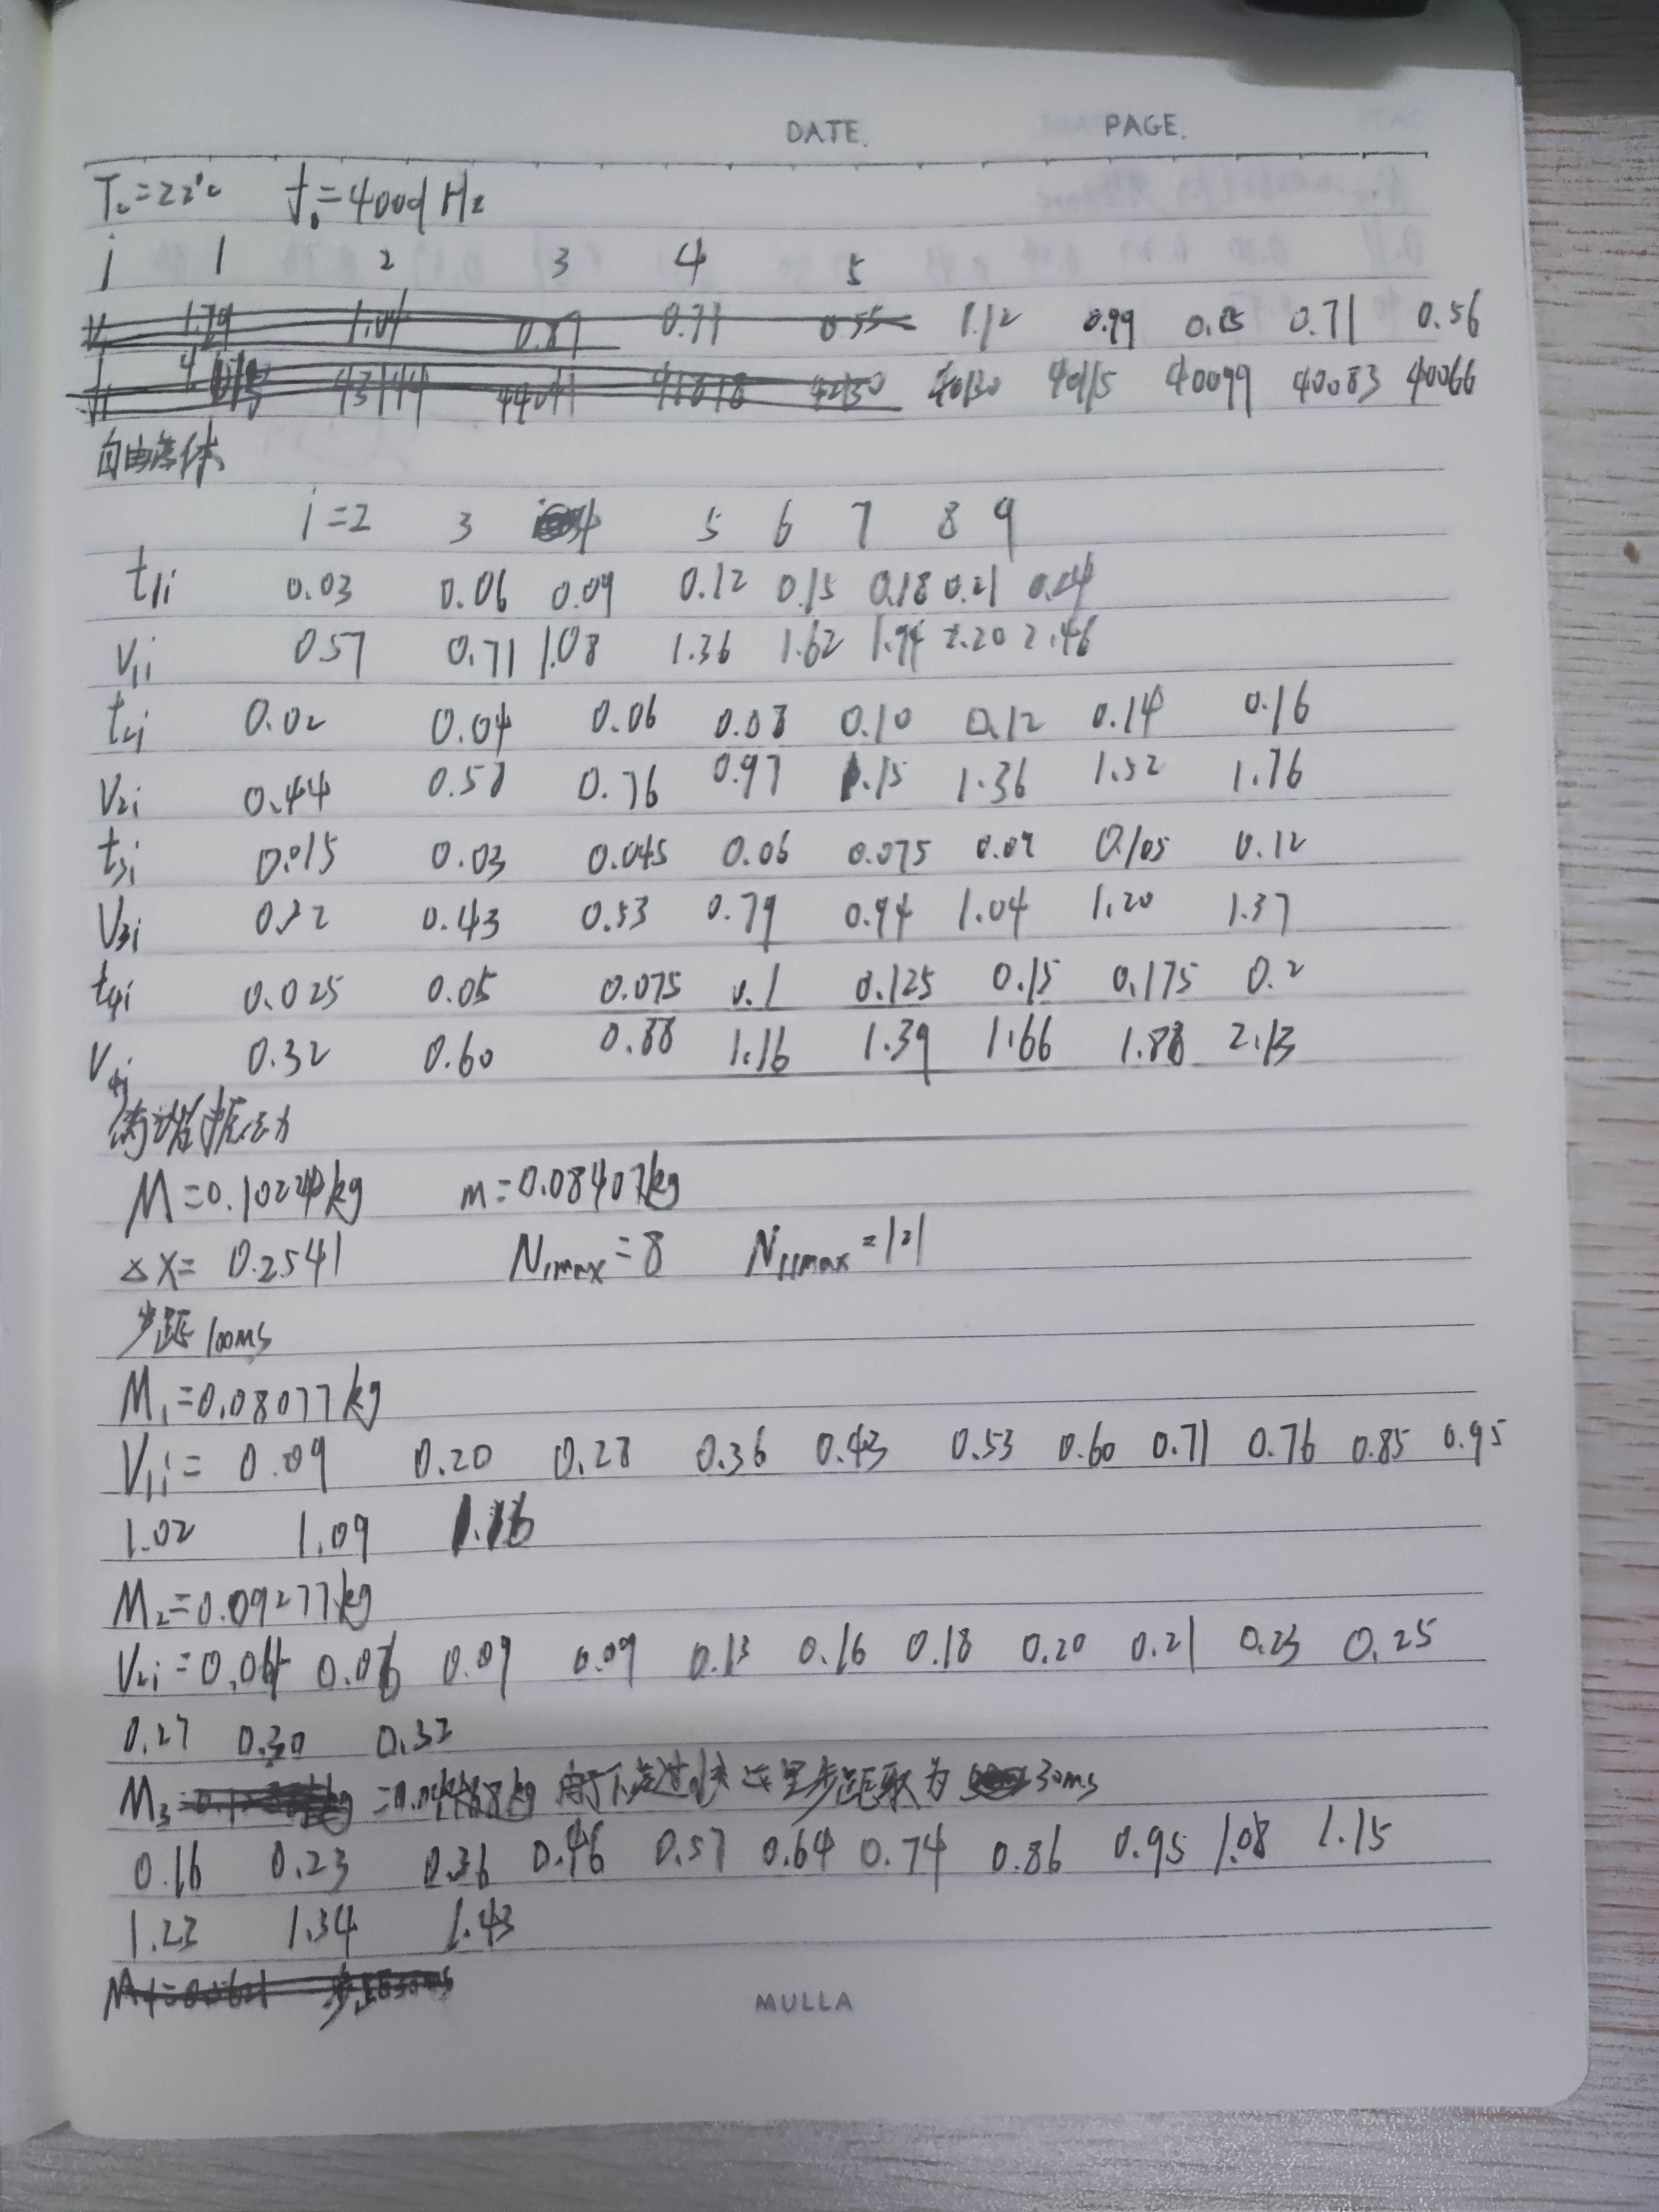 DATE. PAGE.
T₀=22℃ f₀=4000 Hz
i 1 2 3 4 5
V 1.79 1.04 0.89 0.71 0.55 1.12 0.99 0.85 0.71 0.56
43144 44041 41818 40130 40115 40099 40083 40066
自由落体
i=2 3 4 5 6 7 8 9
t₁ᵢ 0.03 0.06 0.09 0.12 0.15 0.18 0.21 0.24
V₁ᵢ 0.57 0.71 1.08 1.36 1.62 1.94 2.20 2.46
t₂ᵢ 0.02 0.04 0.06 0.08 0.10 0.12 0.14 0.16
V₂ᵢ 0.44 0.58 0.76 0.97 1.15 1.36 1.52 1.76
t₃ᵢ 0.015 0.03 0.045 0.06 0.075 0.09 0.105 0.12
V₃ᵢ 0.32 0.43 0.53 0.79 0.94 1.04 1.20 1.37
t₄ᵢ 0.025 0.05 0.075 0.1 0.125 0.15 0.175 0.2
V₄ᵢ 0.32 0.60 0.88 1.16 1.39 1.66 1.88 2.13
M=0.10240kg m=0.08407kg
△X=0.2541 N₁max=8 N₁₁max=121
步距100ms
M₁=0.08077kg
V₁ᵢ=0.09 0.20 0.28 0.36 0.43 0.53 0.60 0.71 0.76 0.85 0.95
1.02 1.09 1.16
M₂=0.09277kg
V₂ᵢ=0.04 0.06 0.09 0.09 0.13 0.16 0.18 0.20 0.21 0.23 0.25
0.27 0.30 0.32
M₃ 由于下落过快 这里步距取为 30ms
0.16 0.23 0.36 0.46 0.57 0.64 0.74 0.86 0.95 1.08 1.15
1.23 1.34 1.43
MULLA